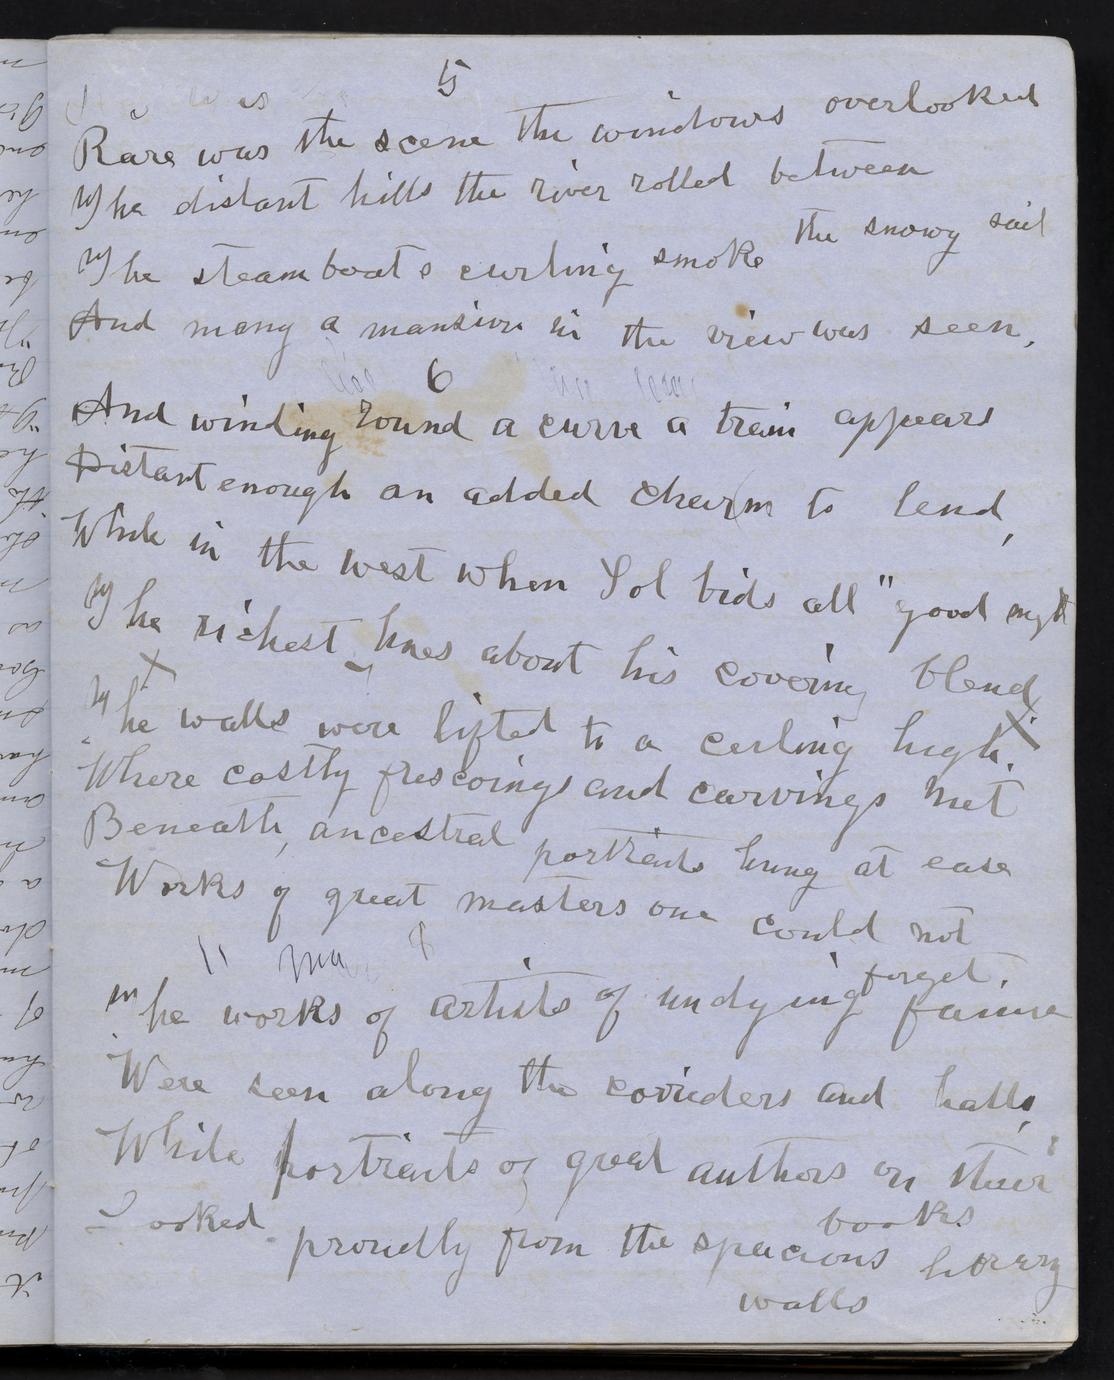 5
Rare was the scene the windows overlooked
The distant hills the river rolled between
The steamboats curling smoke the snowy sail
And many a mansion in the view was seen.
6
And winding round a curve a train appears
Distant enough an added charm to lend,
While in the west when Sol bids all "good night
The richest hues about his covering blend
X
The walls were lifted to a ceiling high. X
Where costly frescoings and carvings met
Beneath, ancestral portraits hung at ease
Works of great masters one could not
forget.
The works of artists of undying fame
Were seen along the corriders and halls,
While portraits of great authors on their
books
Looked proudly from the spacious library
walls